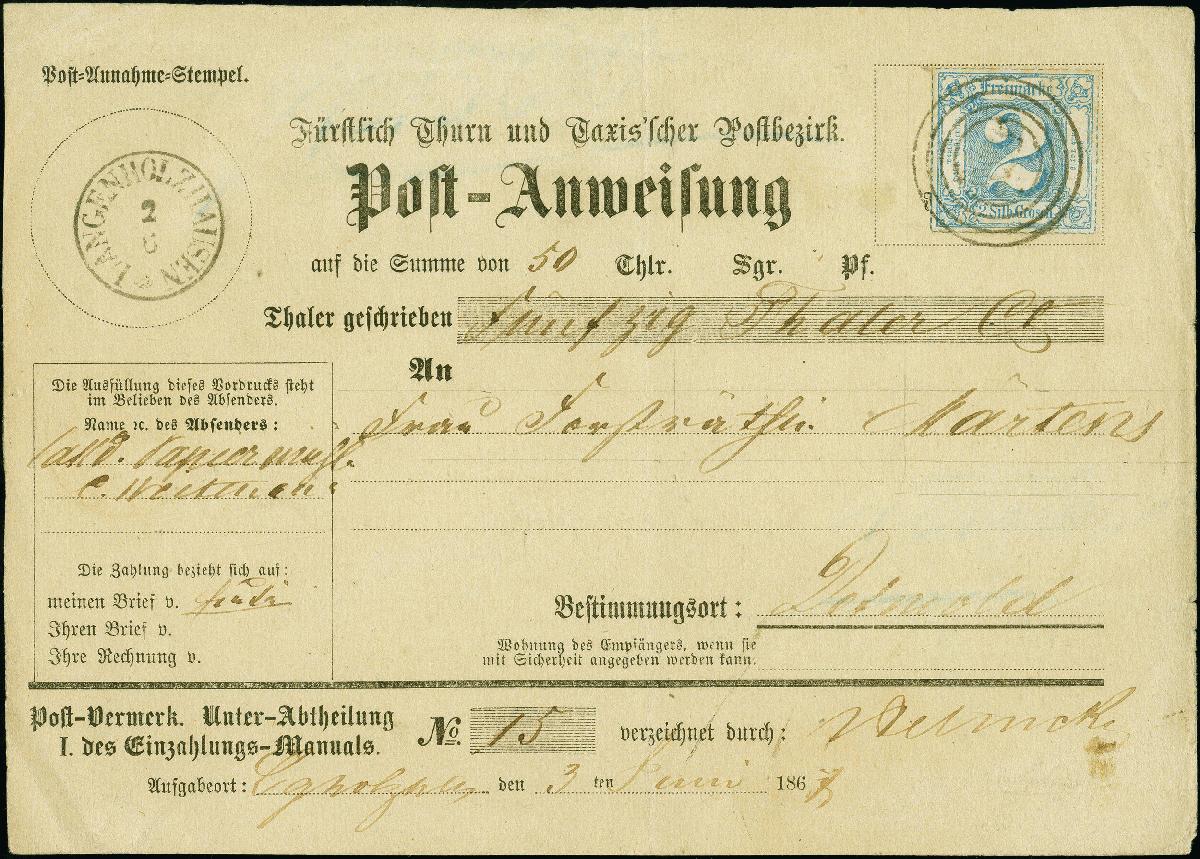 Post-Annahme-Stempel.
LANGENHOLZHAUSEN
2
Freimarke
2
2 Silb. Grosch.
Fürstlich Thurn und Taxis'scher Postbezirk.
Post-Anweisung
auf die Summe von 50 Thlr. Sgr. Pf.
Thaler geschrieben Fünfzig Thaler
An
Frau Forsträthin Märtens
Die Ausfüllung dieses Vordrucks steht
im Belieben des Absenders.
Name ꝛc. des Absenders:
Die Zahlung bezieht sich auf:
meinen Brief v. heute
Ihren Brief v.
Ihre Rechnung v.
Bestimmungsort: Detmold
Wohnung des Empfängers, wenn sie
mit Sicherheit angegeben werden kann.
Post-Vermerk. Unter-Abtheilung
I. des Einzahlungs-Manuals.
No. 15 verzeichnet durch:
Aufgabeort: den 3 ten Juni 186